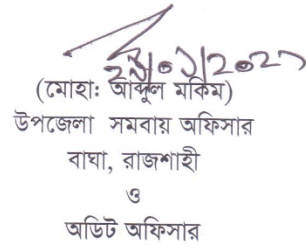 (মোহাঃ আব্দুল মকিম)
উপজেলা সমবায় অফিসার
বাঘা, রাজশাহী
ও
অডিট অফিসার